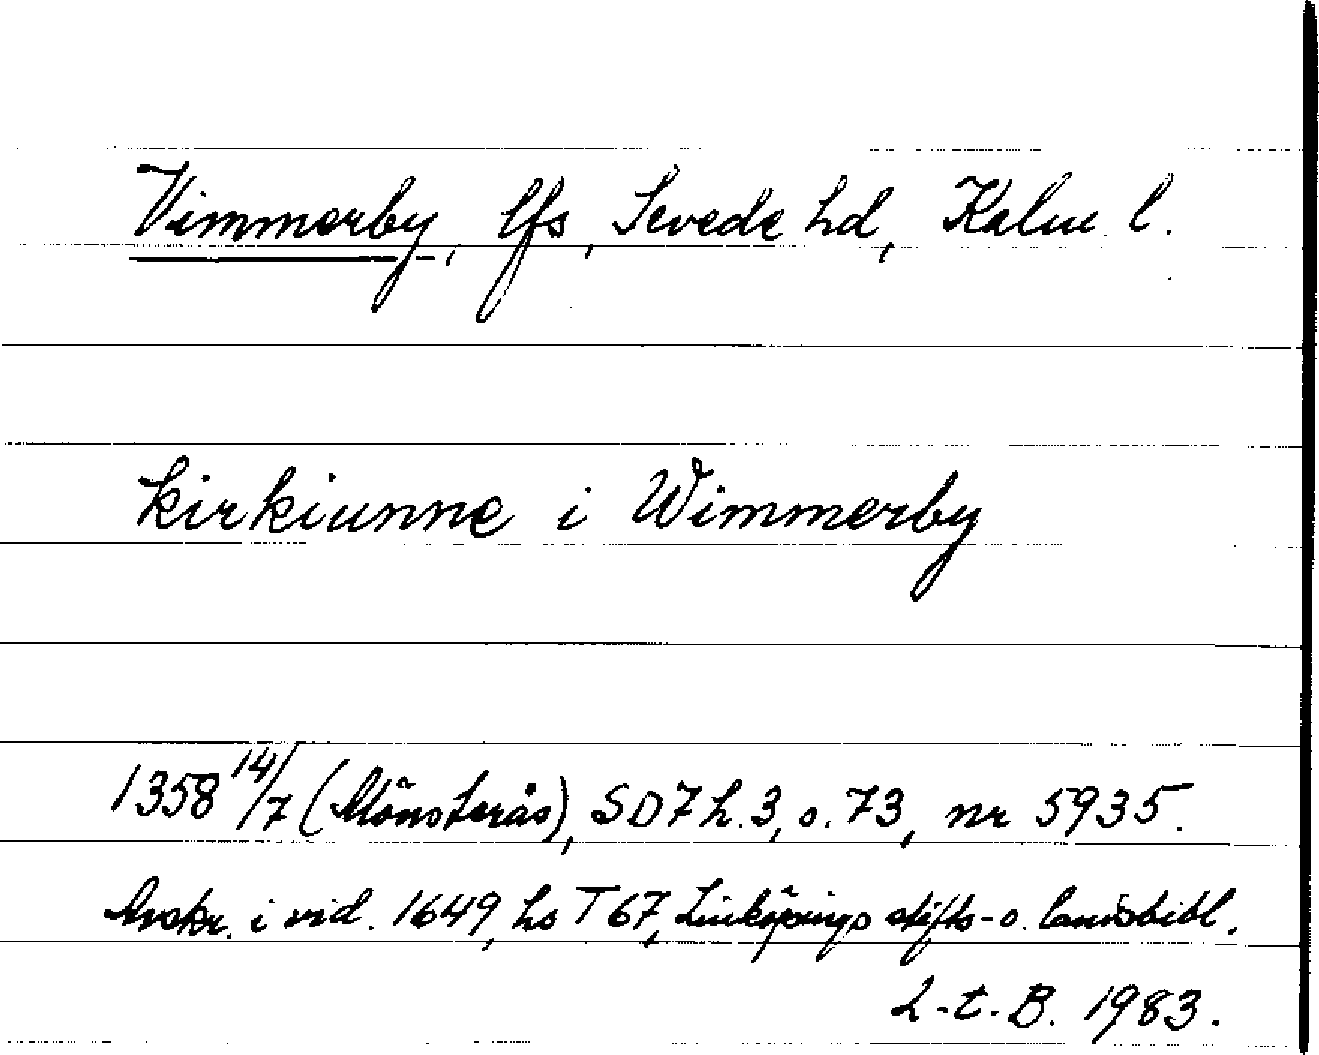 Vimmerby, lfs, Sevede hd, Kalm. l.
kirkiunne i Wimmerby
1358 14/7 (Mönsterås), SD 7 h. 3, s. 73, nr 5935.
Avskr. i vid. 1649, hs T 67, Linköpings stifts- o. landsbibl.
L-t. B. 1983.